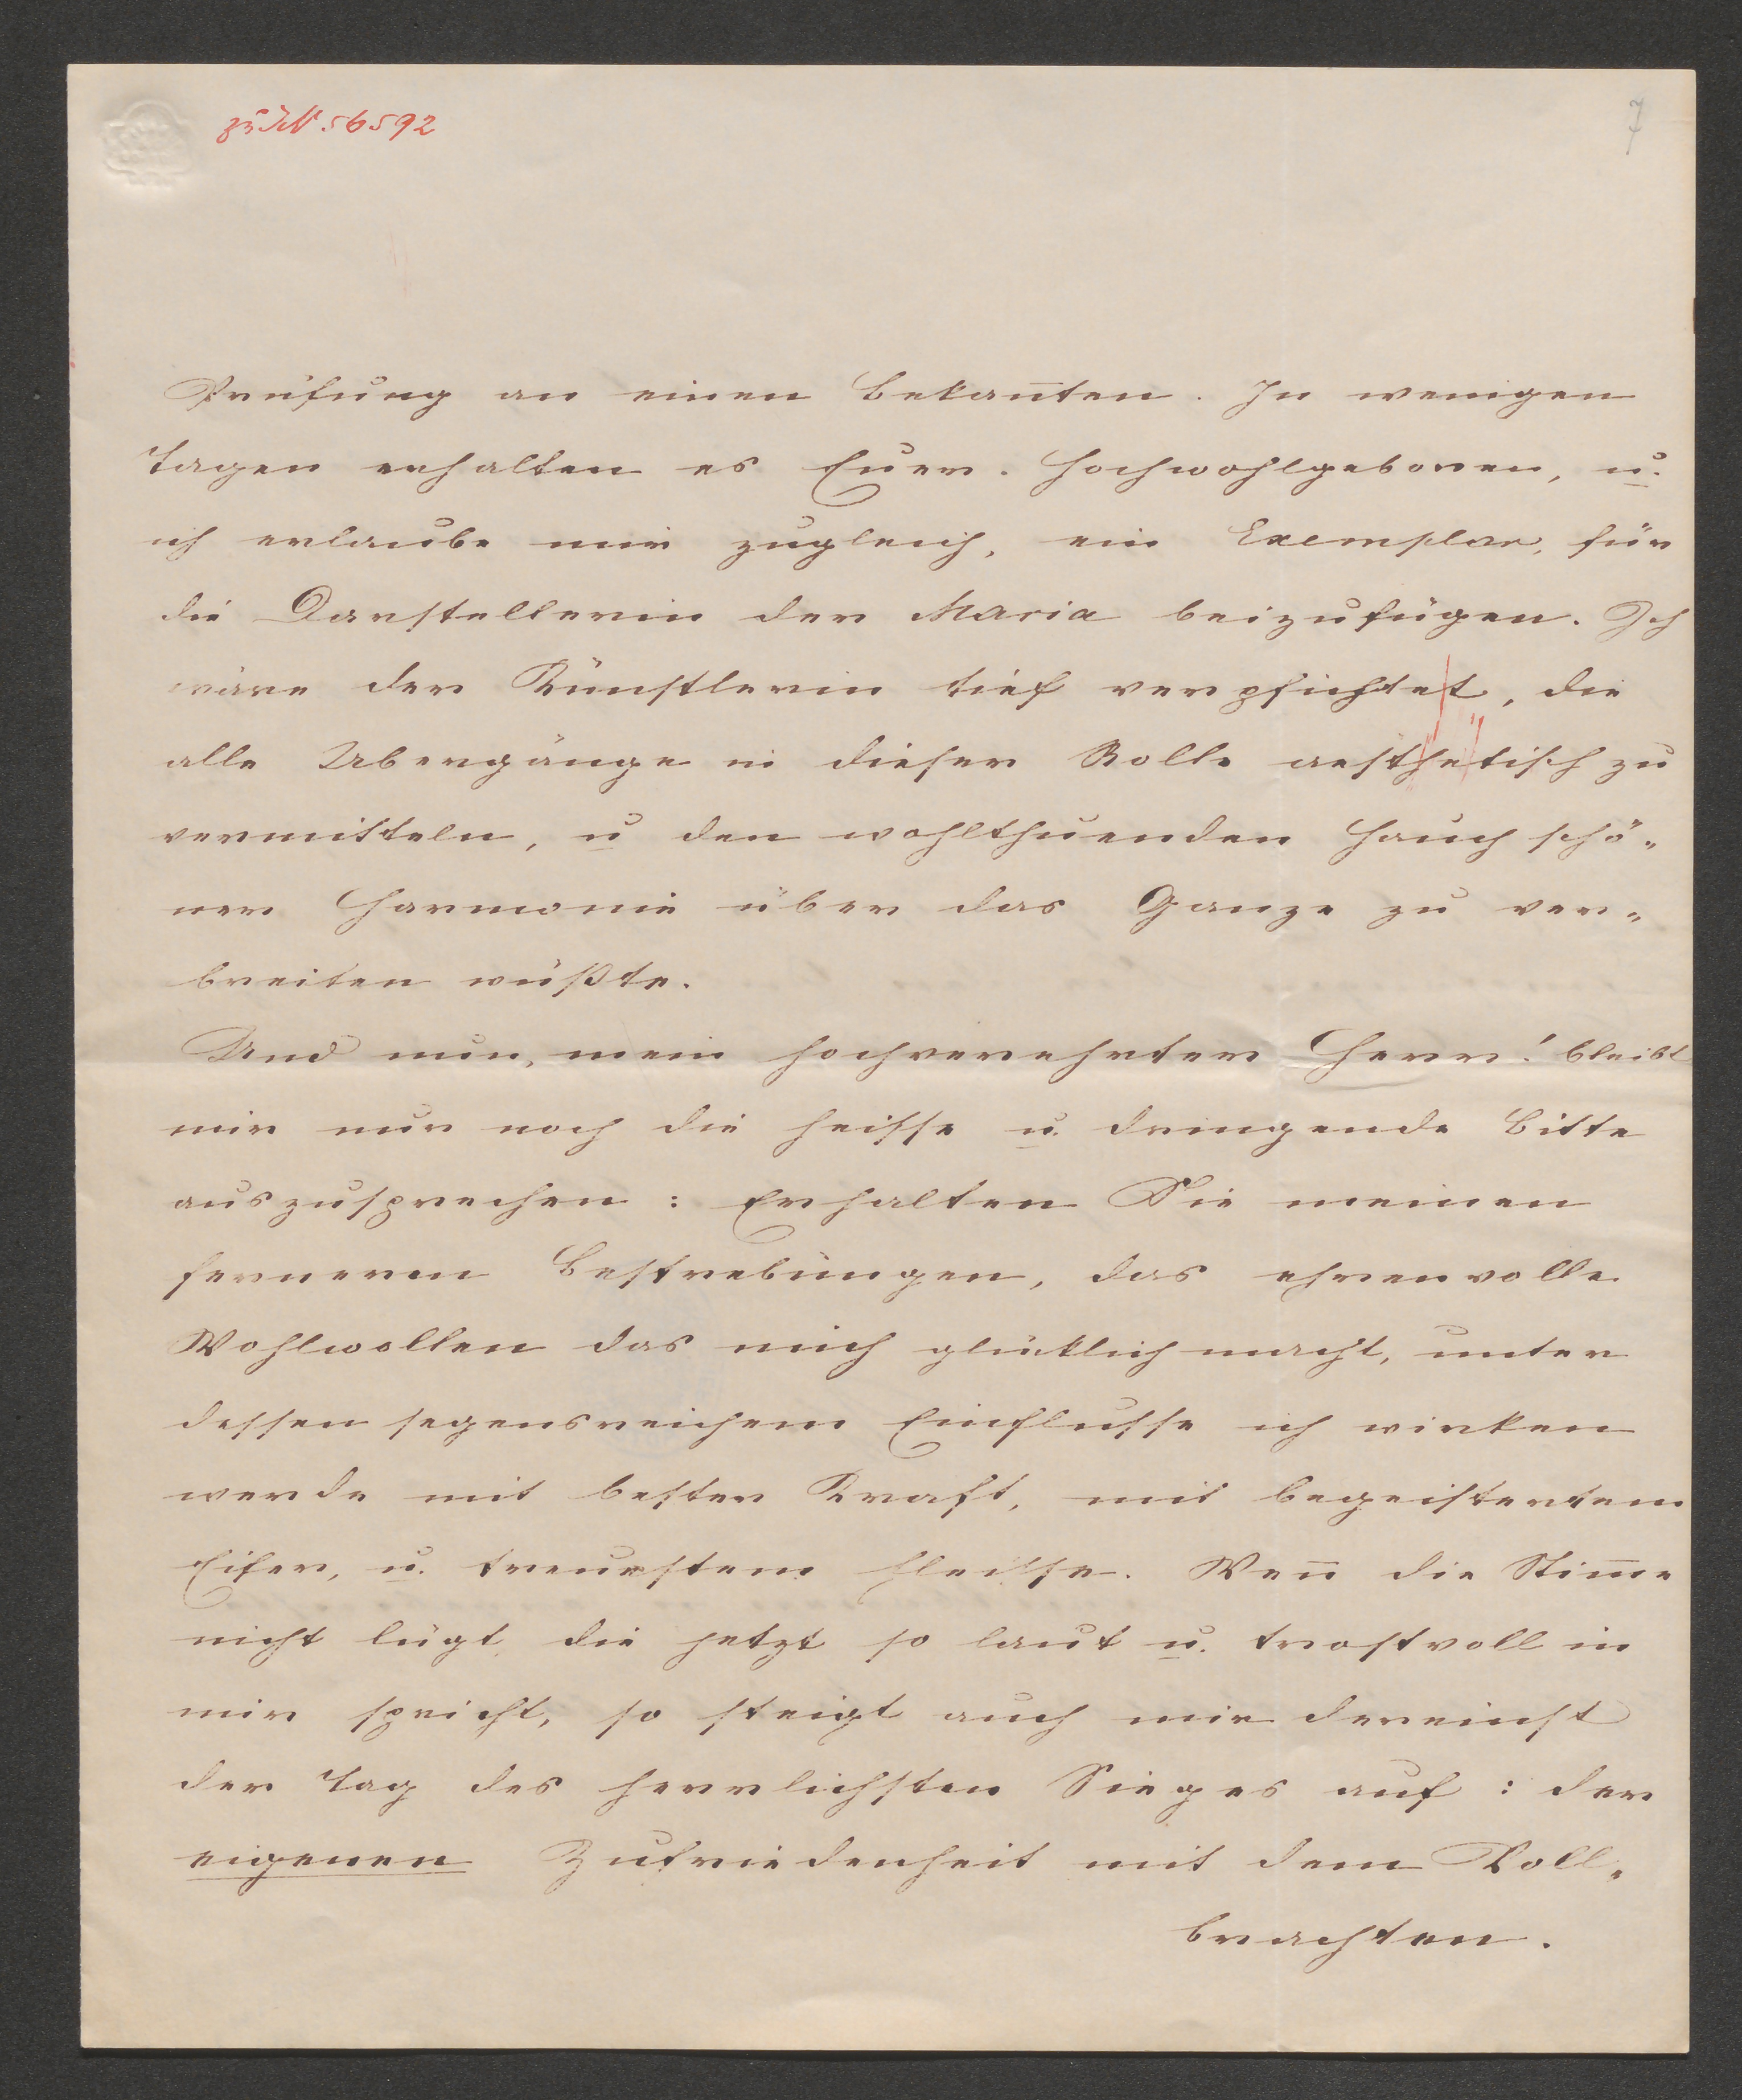 zu IN 56592
7
Prüfung an einen Bekañten. In wenigen
Tagen erhalten es Euer. Hochwohlgeboren, u.
ich erlaube mir zugleich, ein Exemplar, für
die Darstellerin der Maria beizufügen. Ich
wäre der Künstlerin tief verpflichtet, die
alle Übergänge in dieser Rolle aesthetisch zu
vermitteln, u den wohlthuenden Hauch schö„
ner Harmonie über das Ganze zu ver„
breiten wüßte.
Und nun, mein hochverehrter Herr! bleibt
mir nur noch die heisse u. dringende Bitte
auszusprechen: Erhalten Sie meinen
ferneren Bestrebungen, das ehrenvolle
Wohlwollen das mich glücklich macht, unter
dessen segensreichem Einflusse ich wirken
werde mit bester Kraft, mit begeistertem
Eifer, u. treuestem Fleisse. Weñ die Stim̄e
nicht lügt, die jetzt so laut u. trostvoll in
mir spricht, so steigt auch mir dereinst
der Tag des herrlichsten Sieges auf: der
eigenen Zufriedenheit mit dem Voll„
brachten.